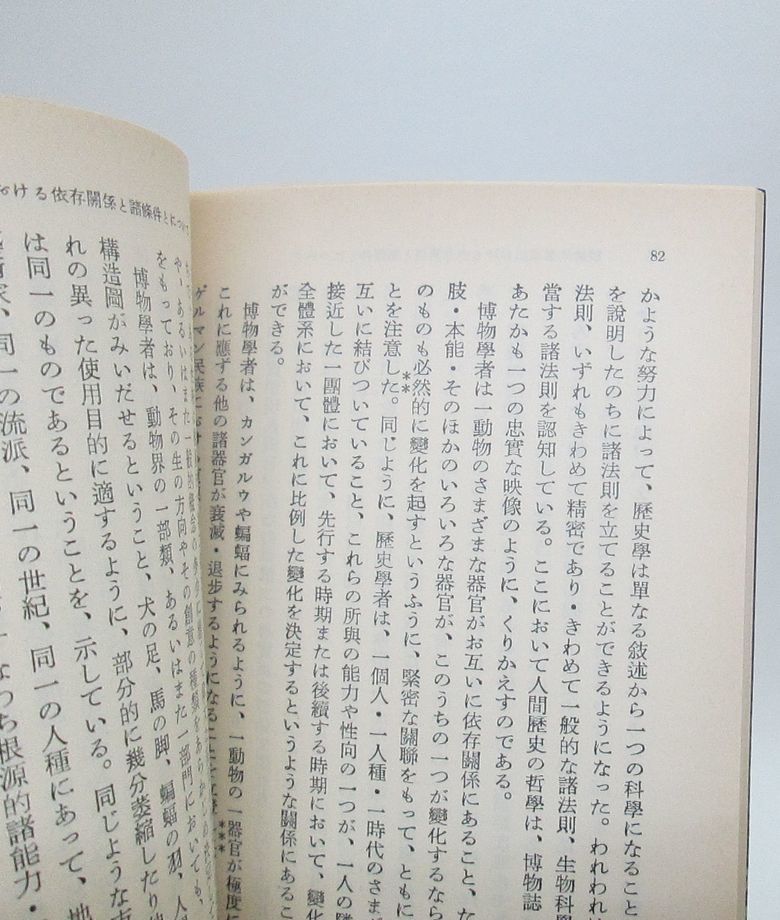 82
かような努力によって、歷史學は單なる敍述から一つの科學になること
を說明したのちに諸法則を立てることができるようになった。われわれは
法則、いずれもきわめて精密であり・きわめて一般的な諸法則、生物科學
當する諸法則を認知している。ここにおいて人間歷史の哲學は、博物誌
あたかも一つの忠實な映像のように、くりかえすのである。
博物學者は一動物のさまざまな器官がお互いに依存關係にあること、な
肢・本能・そのほかのいろいろな器官が、このうちの一つが變化するなら
のものも必然的に變化を起すというふうに、緊密な關聯をもって、ともに
とを注意した。**同じように、歷史學者は、一個人・一人種・一時代のさまざ
互いに結びついていること、これらの所與の能力や性向の一つが、一人の隣
接近した一團體において、先行する時期または後續する時期において、變化
全體系において、これに比例した變化を決定するというような關係にあるこ
ができる。
博物學者は、カンガルウや蝙蝠にみられるように、一動物の一器官が極度に
これに應ずる他の諸器官が衰減・退步するようになることを
ゲルマン民族における
ける依存關係と諸條件とについて
や、あるいはまた一般的
をもっており、その生の方向やその創意の種類をあらかじめ
博物學者は、動物界の一部類、あるいはまた一部門においても、
構造圖がみいだせるということ、犬の足、馬の脚、蝙蝠の羽、人
れの異った使用目的に適するように、部分的に幾分萎縮したり
は同一のものであるということを、示している。同じような
術家、同一の流派、同一の世紀、同一の人種にあって、地
なわち根源的諸能力・